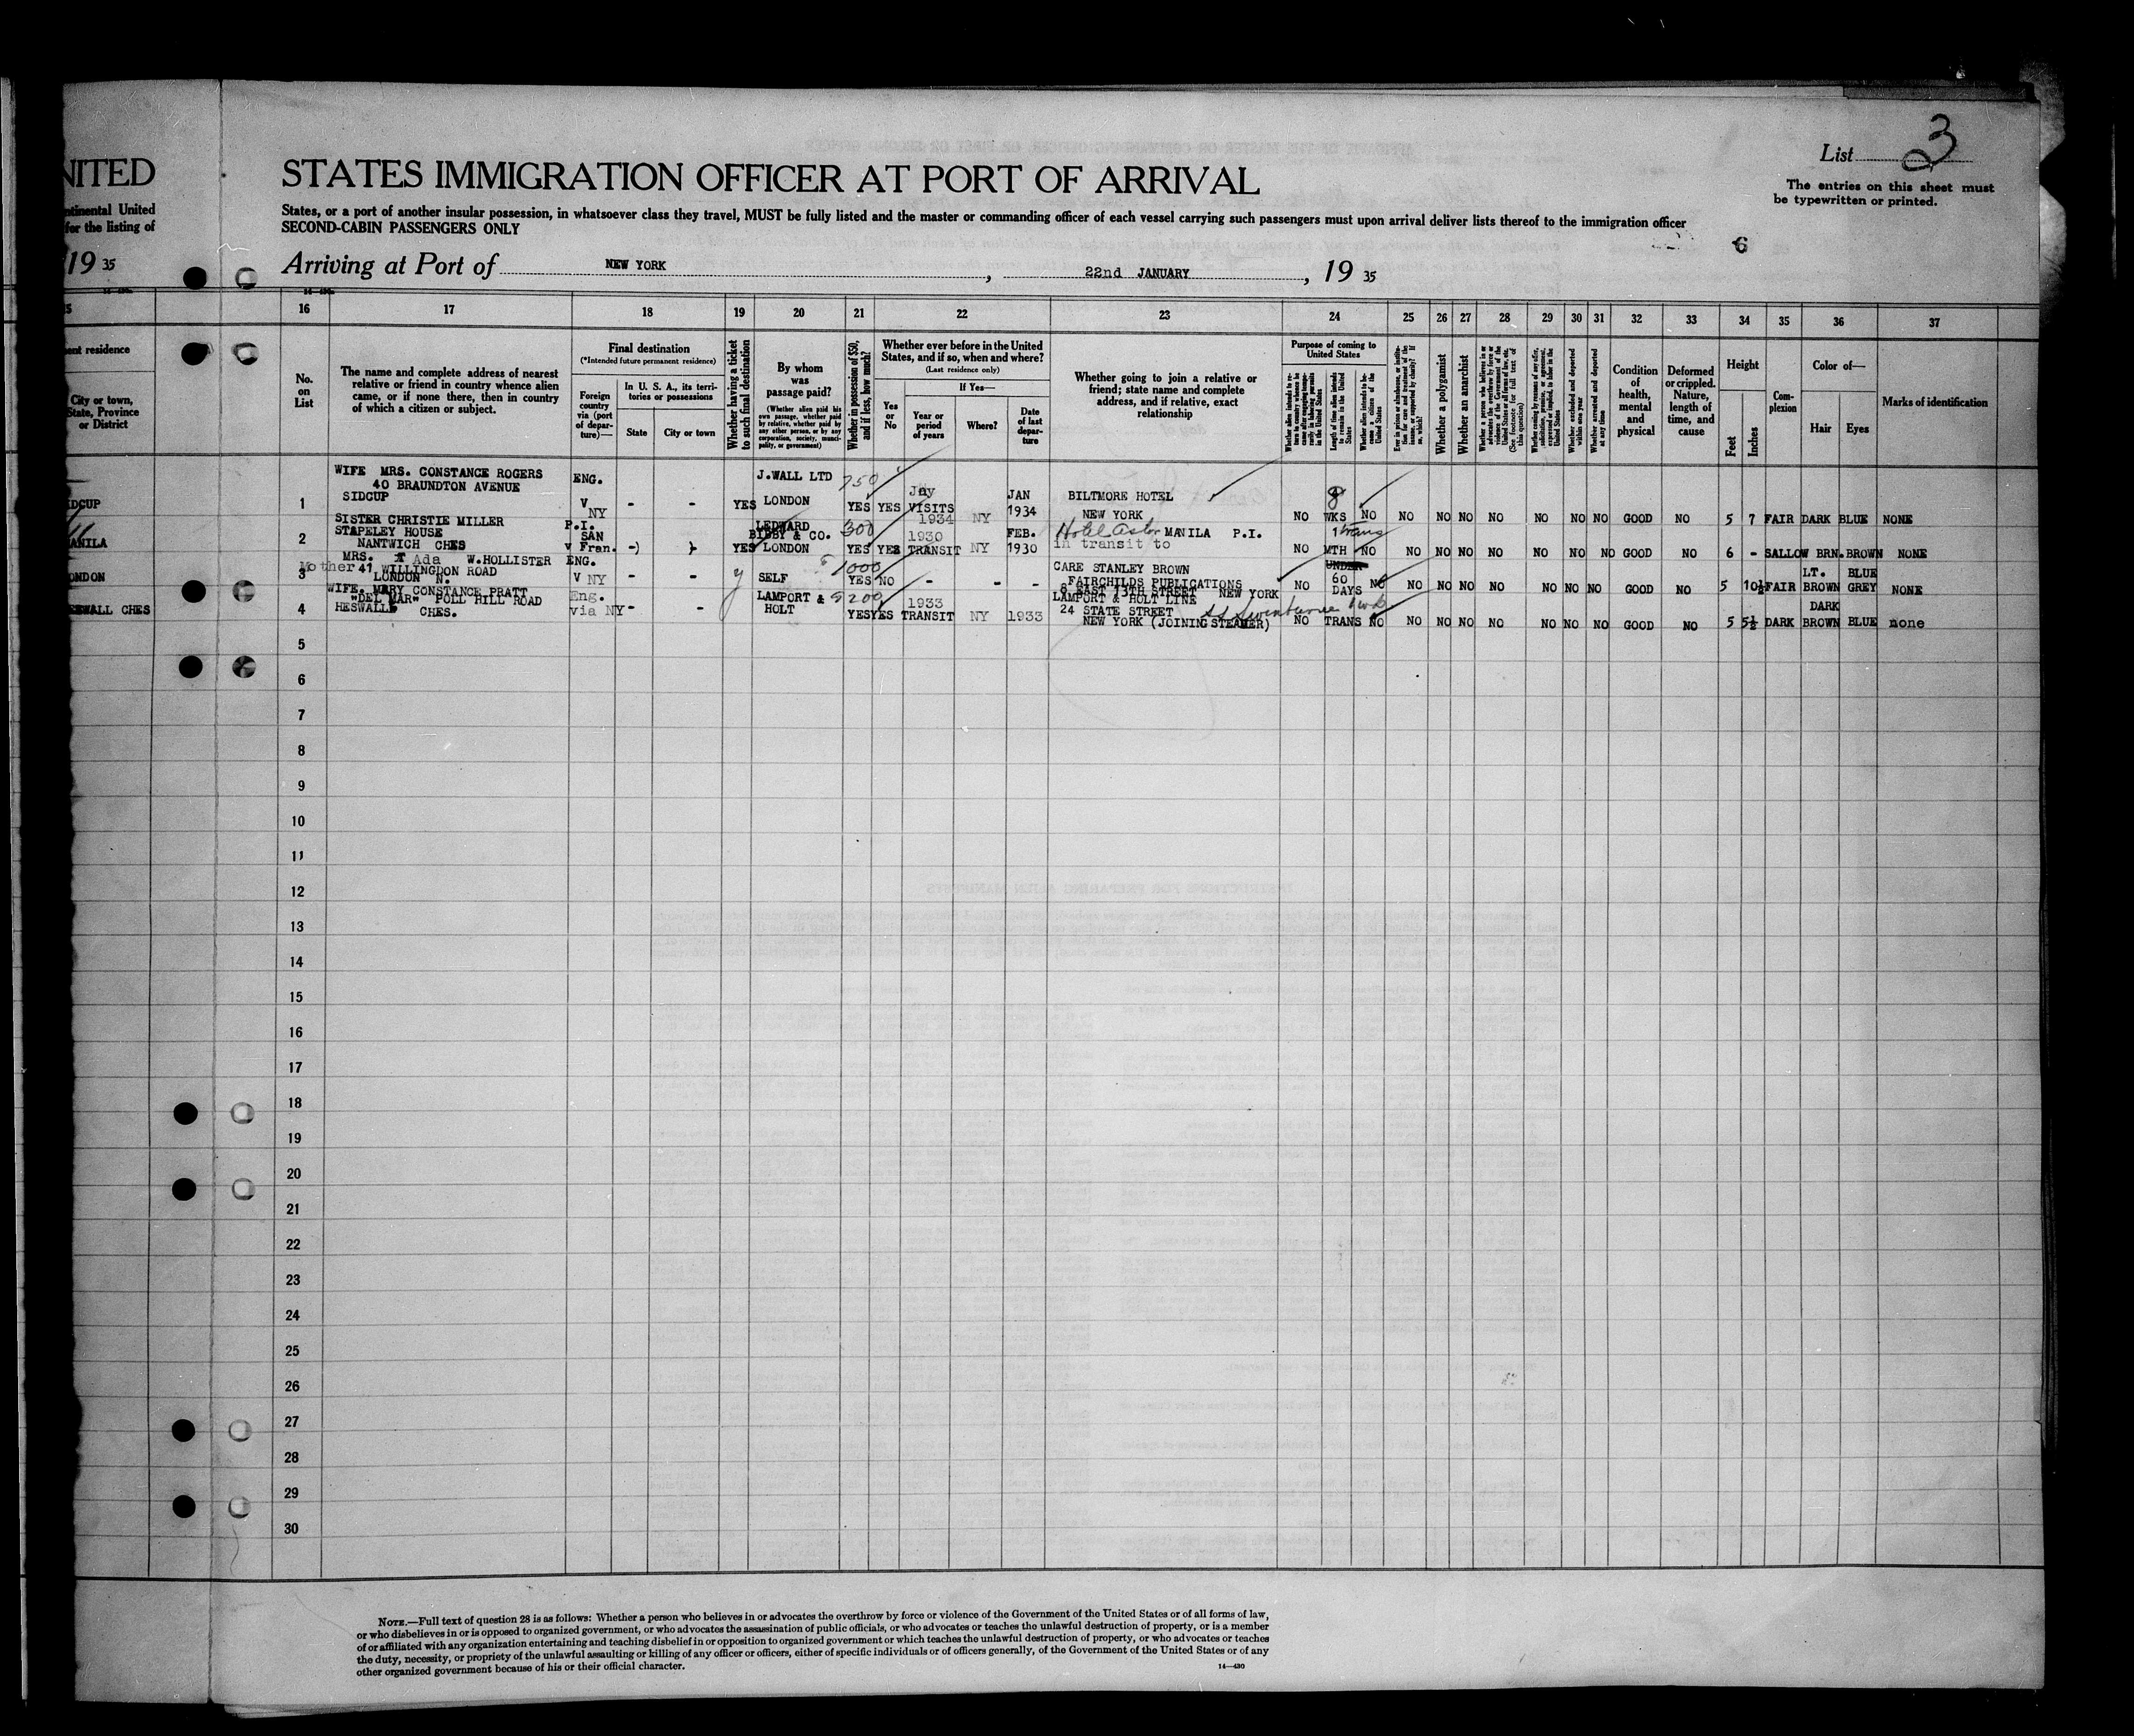 NITED
STATES IMMIGRATION OFFICER AT PORT OF ARRIVAL
List 3
The entries on this sheet must
be typewritten or printed.
ntinental United
for the listing of
States, or a port of another insular possession, in whatsoever class they travel, MUST be fully listed and the master or commanding officer of each vessel carrying such passengers must upon arrival deliver lists thereof to the immigration officer
SECOND-CABIN PASSENGERS ONLY
6
19 35
Arriving at Port of NEW YORK , 22nd JANUARY , 19 35
16 17 18 19 20 21 22 23 24 25 26 27 28 29 30 31 32 33 34 35 36 37
ent residence
City or town,
State, Province
or District
No.
on
List
The name and complete address of nearest
relative or friend in country whence alien
came, or if none there, then in country
of which a citizen or subject.
Final destination
(*Intended future permanent residence)
Foreign
country
via (port
of depar-
ture)—
In U. S. A., its terri-
tories or possessions
State
City or town
Whether having a ticket
to such final destination
By whom
was
passage paid?
(Whether alien paid his
own passage, whether paid
by relative, whether paid by
any other person, or by any
corporation, society, munici-
pality, or government)
Whether in possession of $50,
and if less, how much?
Whether ever before in the United
States, and if so, when and where?
(Last residence only)
Yes
or
No
If Yes—
Year or
period
of years
Where?
Date
of last
depar-
ture
Whether going to join a relative or
friend; state name and complete
address, and if relative, exact
relationship
Purpose of coming to
United States
Length of time alien intends
to remain in the United
States
Whether alien intends to be-
come a citizen of the
United States
Whether a polygamist
Whether an anarchist
Whether arrested and deported
at any time
Condition
of
health,
mental
and
physical
Deformed
or crippled.
Nature,
length of
time, and
cause
Height
Feet
Inches
Com-
plexion
Color of—
Hair
Eyes
Marks of identification
WIFE MRS. CONSTANCE ROGERS
40 BRAUNDTON AVENUE
SIDCUP
IDCUP 1 ENG. V NY - - YES J.WALL LTD LONDON 750 YES YES VISITS 1934 NY JAN 1934 BILTMORE HOTEL NEW YORK NO 8 WKS NO NO NO NO NO NO NO NO GOOD NO 5 7 FAIR DARK BLUE NONE
SISTER CHRISTIE MILLER
STAPELEY HOUSE
NANTWICH CHES
ANILA 2 P.I. SAN v Fran. YES LEDWARD BIBBY & CO. LONDON 300 YES YES 1930 TRANSIT NY FEB. 1930 Hotel Astor MANILA P.I. in transit to NO 1 MTH trans NO NO NO NO NO NO NO NO GOOD NO 6 - SALLOW BRN. BROWN NONE
MRS. Ada W.HOLLISTER
Mother 41 WILLINGDON ROAD
LONDON N.
ONDON 3 ENG. V NY - - y SELF 1000 YES NO - - - CARE STANLEY BROWN
FAIRCHILDS PUBLICATIONS
8 EAST 13TH STREET NEW YORK NO UNDER 60 DAYS NO NO NO NO NO NO NO NO GOOD NO 5 10½ FAIR LT. BROWN BLUE GREY NONE
WIFE. MARY CONSTANCE PRATT
"DEL MAR" POLL HILL ROAD
HESWALL CHES.
ESWALL CHES 4 Eng. via NY - - LAMPORT & HOLT $200 YES YES 1933 TRANSIT NY 1933 LAMPORT & HOLT LINE
24 STATE STREET
NEW YORK (JOINING STEAMER) NO TRANS NO NO NO NO NO NO NO NO GOOD NO 5 5½ DARK DARK BROWN BLUE none
5
6
7
8
9
10
11
12
13
14
15
16
17
18
19
20
21
22
23
24
25
26
27
28
29
30
NOTE.—Full text of question 28 is as follows: Whether a person who believes in or advocates the overthrow by force or violence of the Government of the United States or of all forms of law,
or who disbelieves in or is opposed to organized government, or who advocates the assassination of public officials, or who advocates or teaches the unlawful destruction of property, or is a member
of or affiliated with any organization entertaining and teaching disbelief in or opposition to organized government or which teaches the unlawful destruction of property, or who advocates or teaches
the duty, necessity, or propriety of the unlawful assaulting or killing of any officer or officers, either of specific individuals or of officers generally, of the Government of the United States or of any
other organized government because of his or their official character.
14—430